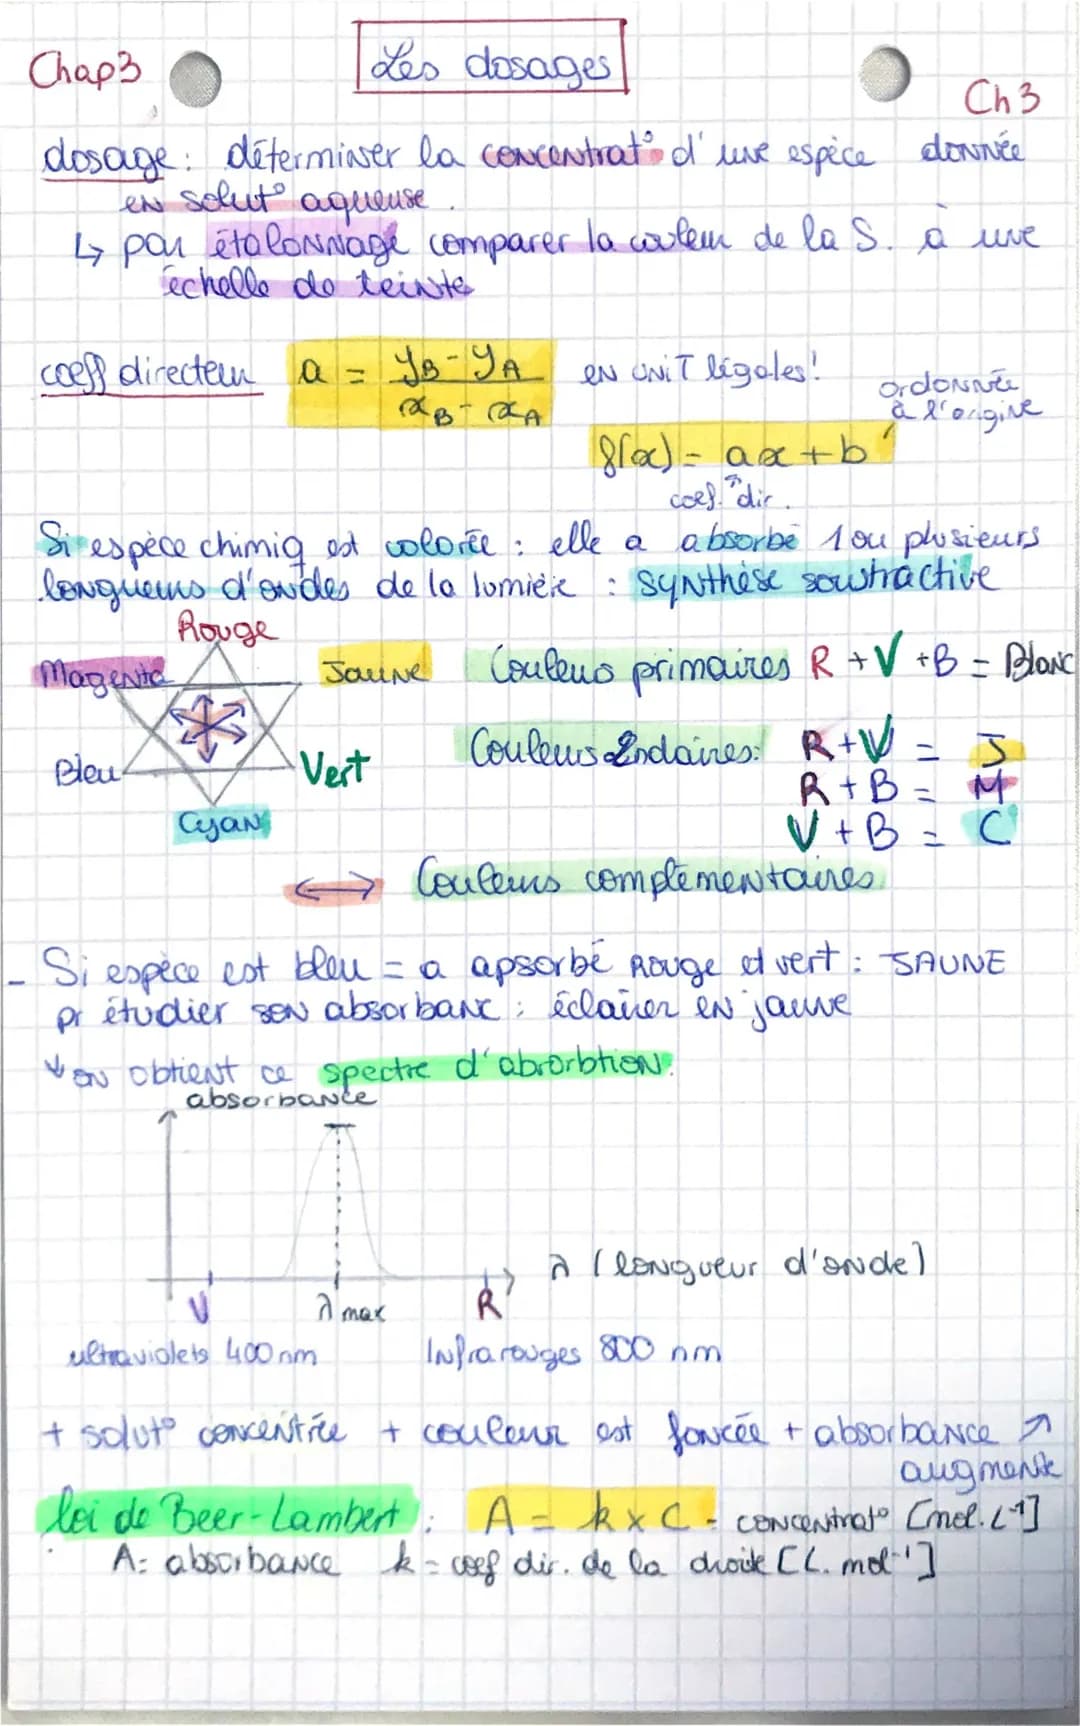 Chap3
Les dosages
Ch 3
dosage : déterminer la concentrat° d'une espèce donnée
en solut° aqueuse.
↳ par étalonnage comparer la couleur de la S. à une
échelle de teinte
coeff directeur a = yB - yA / xB - xA en UNIT légales!
ordonnée
à l'origine
f(x) = ax + b
coef. dir.
Si espèce chimiq est colorée : elle a absorbé 1 ou plusieurs
longueurs d'ondes de la lumière : synthèse soustractive
Rouge
Magenta
Jaune
Couleurs primaires R + V + B = Blanc
Bleu
Vert
Cyan
Couleurs 2ndaires: R + V = J
R + B = M
V + B = C
↔ Couleurs complémentaires
- Si espèce est bleu = a apsorbé Rouge et vert : JAUNE
pr étudier son absorbanc : éclairer en jaune
↓ on obtient ce spectre d'abrorbtion.
absorbance
λ (longueur d'onde)
V
λ max
R
ultraviolets 400 nm
Infrarouges 800 nm
+ solut° concentrée + couleur est foncée + absorbance ↗
augmente
loi de Beer-Lambert : A = k x C - concentrat° [mol.L⁻¹]
A = absorbance k = coef dir. de la droite [L.mol⁻¹]